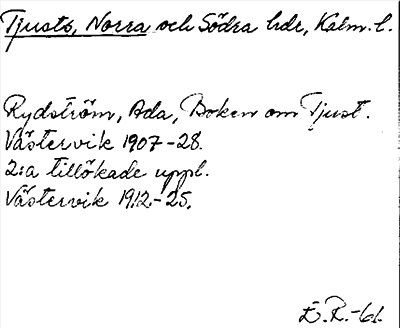 Tjusts, Norra och Södra hde, Kalm. l.
Rydström, Ada, Boken om Tjust.
Västervik 1907-28.
2:a tillökade uppl.
Västervik 1912-25.
E.R.-61.